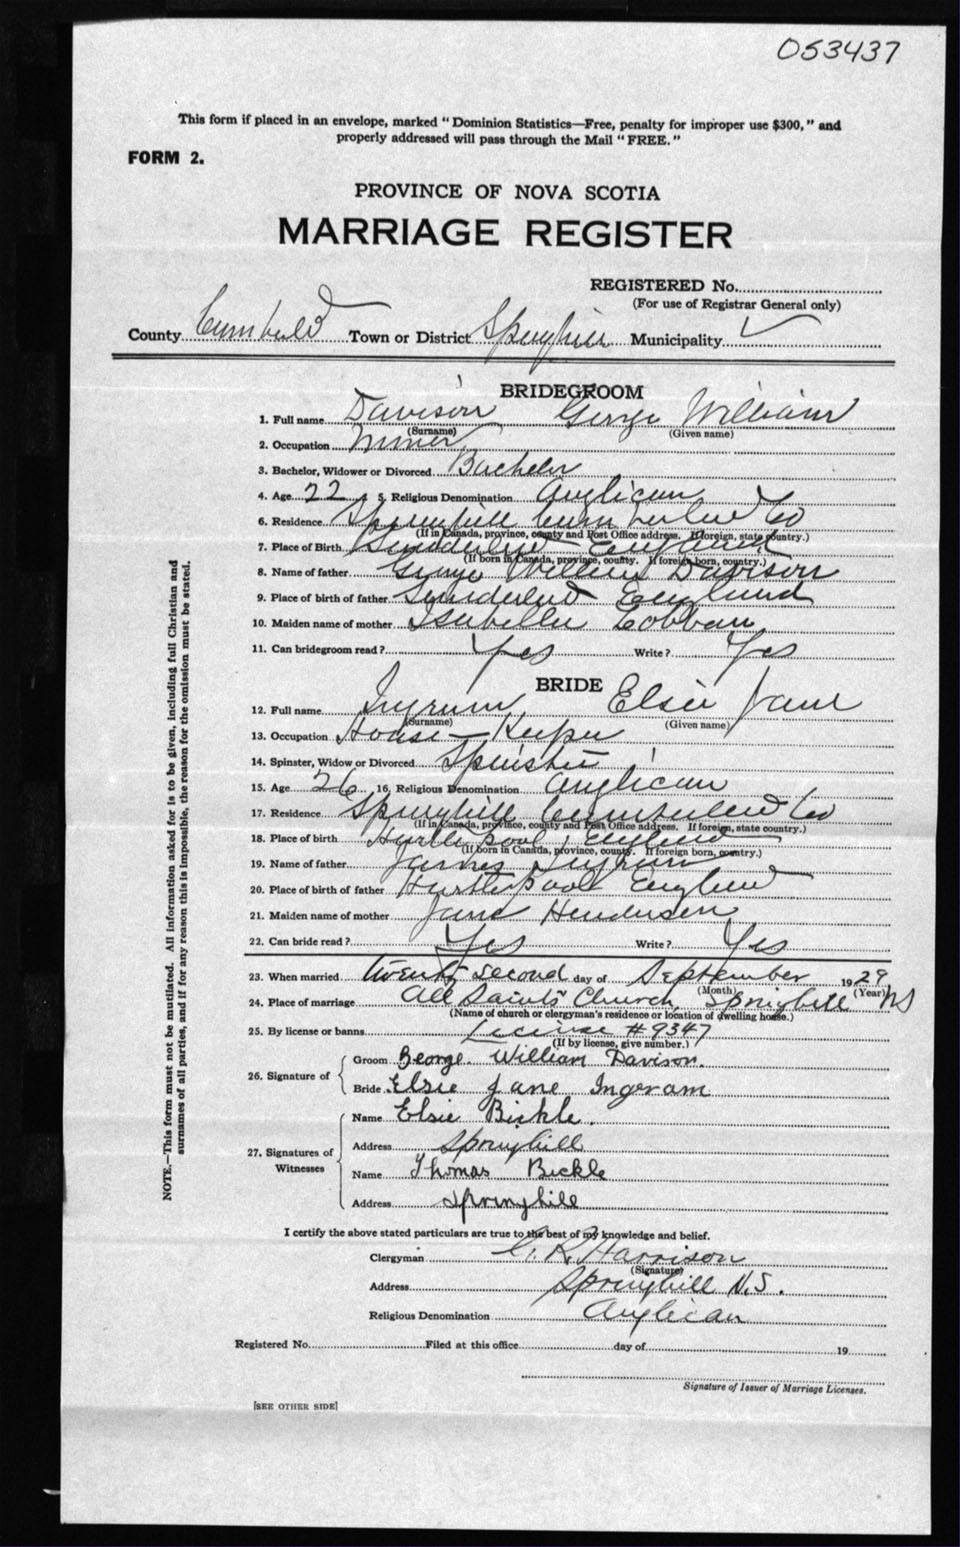 053437
This form if placed in an envelope, marked "Dominion Statistics—Free, penalty for improper use $300," and
properly addressed will pass through the Mail "FREE."
FORM 2.
PROVINCE OF NOVA SCOTIA
MARRIAGE REGISTER
REGISTERED No.
(For use of Registrar General only)
County Cumbe'ld Town or District Springhill Municipality ✓
BRIDEGROOM
1. Full name Davison George William
(Surname) (Given name)
2. Occupation Miner
3. Bachelor, Widower or Divorced Bachelor
4. Age 22 5. Religious Denomination Anglican
6. Residence Springhill Cumberland Co
(If in Canada, province, county and Post Office address. If foreign, state country.)
7. Place of Birth Sunderland England
(If born in Canada, province, county. If foreign born, country.)
8. Name of father George William Davison
9. Place of birth of father Sunderland England
10. Maiden name of mother Isabella Lobban
11. Can bridegroom read? Yes Write? Yes
BRIDE
12. Full name Ingram Elsie Jane
(Surname) (Given name)
13. Occupation House-Keeper
14. Spinster, Widow or Divorced Spinster
15. Age 26 16. Religious Denomination Anglican
17. Residence Springhill Cumberland Co
(If in Canada, province, county and Post Office address. If foreign, state country.)
18. Place of birth Hartlepool England
(If born in Canada, province, county. If foreign born, country.)
19. Name of father James Ingram
20. Place of birth of father Hartlepool England
21. Maiden name of mother Jane Henderson
22. Can bride read? Yes Write? Yes
23. When married twenty second day of September 1929
(Month) (Year)
24. Place of marriage All Saints Church, Springhill NS
(Name of church or clergyman's residence or location of dwelling house.)
25. By license or banns License #9347
(If by license, give number.)
26. Signature of
Groom George William Davison.
Bride Elsie Jane Ingram
27. Signatures of Witnesses
Name Elsie Bickle.
Address Springhill
Name Thomas Bickle
Address Springhill
I certify the above stated particulars are true to the best of my knowledge and belief.
Clergyman C. R. Harrison
(Signature)
Address Springhill N.S.
Religious Denomination Anglican
Registered No. Filed at this office day of 19
Signature of Issuer of Marriage Licenses.
[SEE OTHER SIDE]
NOTE.—This form must not be mutilated. All information asked for is to be given, including full Christian and
surnames of all parties, and if for any reason this is impossible, the reason for the omission must be stated.